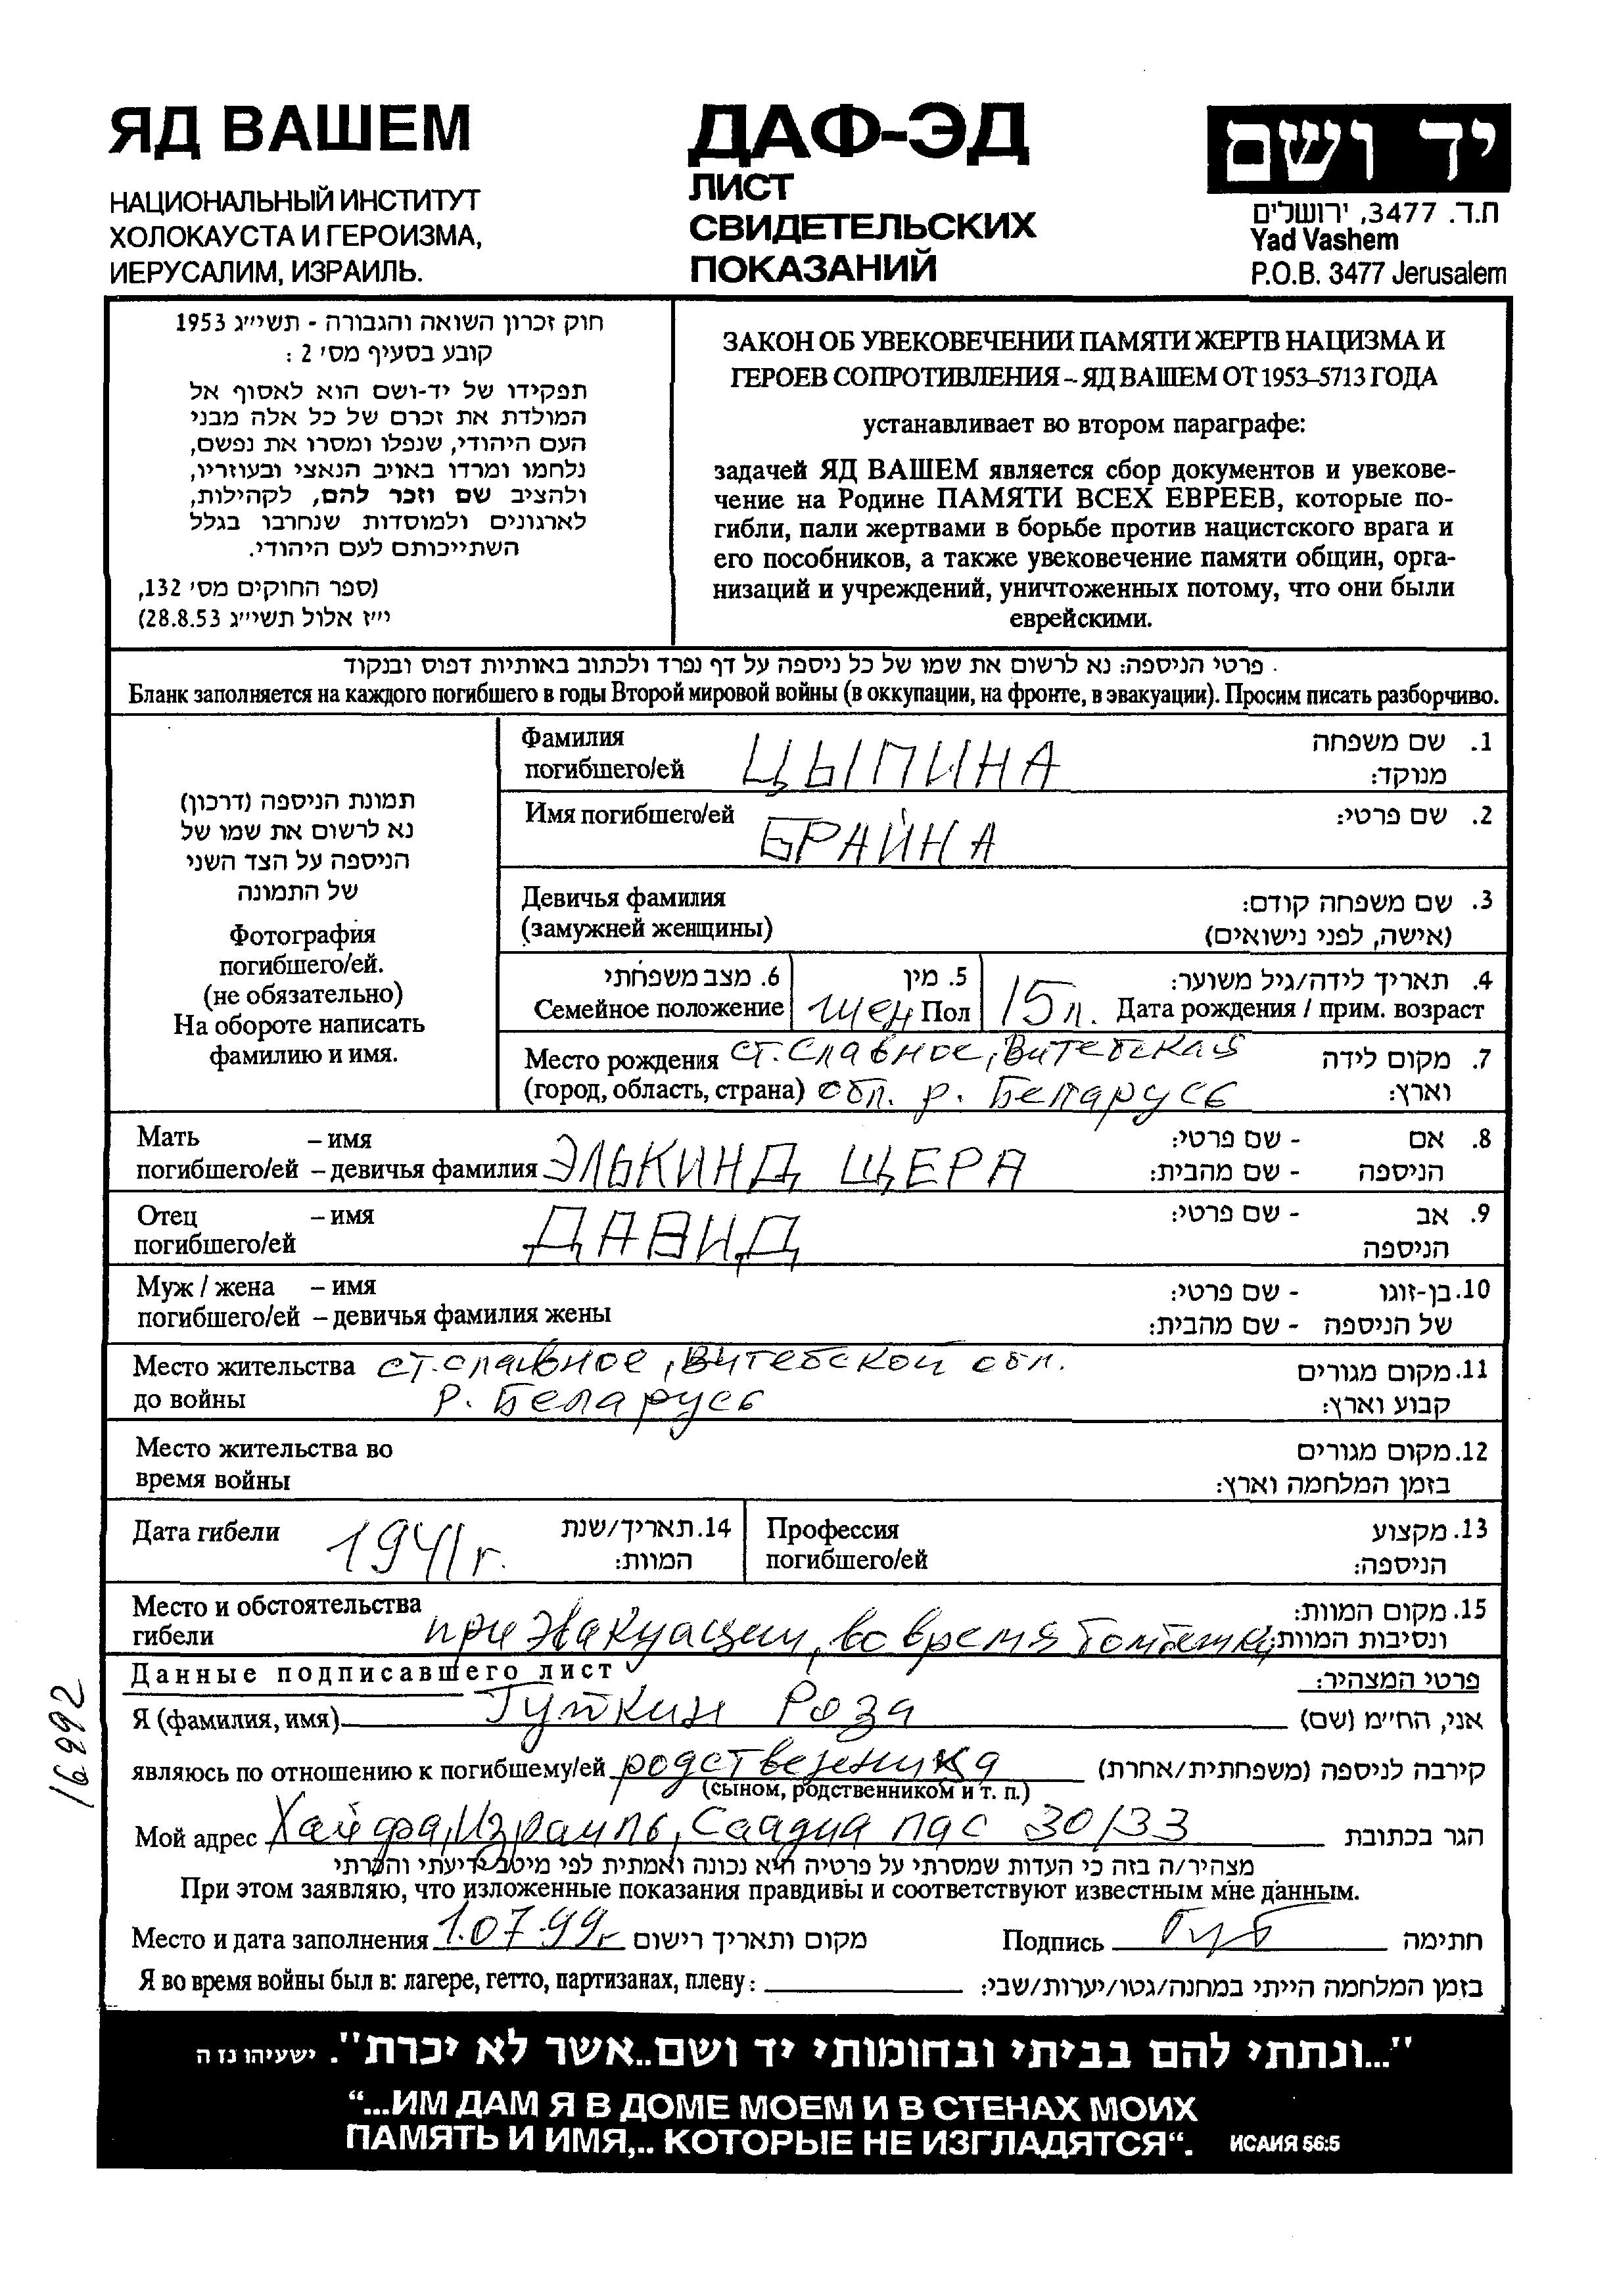 ЯД ВАШЕМ
НАЦИОНАЛЬНЫЙ ИНСТИТУТ
ХОЛОКАУСТА И ГЕРОИЗМА,
ИЕРУСАЛИМ, ИЗРАИЛЬ.
ДАФ-ЭД
ЛИСТ
СВИДЕТЕЛЬСКИХ
ПОКАЗАНИЙ
יד ושם
ת.ד. 3477, ירושלים
Yad Vashem
P.O.B. 3477 Jerusalem
חוק זכרון השואה והגבורה - תשי״ג 1953
קובע בסעיף מס׳ 2 :
תפקידו של יד-ושם הוא לאסוף אל
המולדת את זכרם של כל אלה מבני
העם היהודי, שנפלו ומסרו את נפשם,
נלחמו ומרדו באויב הנאצי ובעוזריו,
ולהציב שם וזכר להם, לקהילות,
לארגונים ולמוסדות שנחרבו בגלל
השתייכותם לעם היהודי.
(ספר החוקים מס׳ 132,
י״ז אלול תשי״ג 28.8.53)
ЗАКОН ОБ УВЕКОВЕЧЕНИИ ПАМЯТИ ЖЕРТВ НАЦИЗМА И
ГЕРОЕВ СОПРОТИВЛЕНИЯ – ЯД ВАШЕМ ОТ 1953–5713 ГОДА
устанавливает во втором параграфе:
задачей ЯД ВАШЕМ является сбор документов и увекове-
чение на Родине ПАМЯТИ ВСЕХ ЕВРЕЕВ, которые по-
гибли, пали жертвами в борьбе против нацистского врага и
его пособников, а также увековечение памяти общин, орга-
низаций и учреждений, уничтоженных потому, что они были
еврейскими.
פרטי הניספה: נא לרשום את שמו של כל ניספה על דף נפרד ולכתוב באותיות דפוס ובנקוד
Бланк заполняется на каждого погибшего в годы Второй мировой войны (в оккупации, на фронте, в эвакуации). Просим писать разборчиво.
תמונת הניספה (דרכון)
נא לרשום את שמו של
הניספה על הצד השני
של התמונה
Фотография
погибшего/ей.
(не обязательно)
На обороте написать
фамилию и имя.
Фамилия ЦЫПИНА 1. שם משפחה
погибшего/ей מנוקד:
Имя погибшего/ей БРАЙНА 2. שם פרטי:
Девичья фамилия 3. שם משפחה קודם:
(замужней женщины) (אישה, לפני נישואים)
6. מצב משפחתי 5. מין 4. תאריך לידה/גיל משוער:
Семейное положение жен Пол 15 л. Дата рождения / прим. возраст
Место рождения ст. Славное, Витебская 7. מקום לידה
(город, область, страна) обл. р. Беларусь וארץ:
Мать – имя 8. אם - שם פרטי:
погибшего/ей – девичья фамилия ЭЛЬКИНД ЩЕРА הניספה - שם מהבית:
Отец – имя ДАВИД 9. אב - שם פרטי:
погибшего/ей הניספה
Муж / жена – имя 10. בן-זוגו - שם פרטי:
погибшего/ей – девичья фамилия жены של הניספה - שם מהבית:
Место жительства ст. славное, Витебской обл. 11. מקום מגורים
до войны р. Беларусь קבוע וארץ:
Место жительства во 12. מקום מגורים
время войны בזמן המלחמה וארץ:
Дата гибели 1941 г. 14. תאריך/שנת Профессия 13. מקצוע
המוות: погибшего/ей הניספה:
Место и обстоятельства 15. מקום המוות:
гибели при эвакуации, во время бомбежки ונסיבות המוות:
Данные подписавшего лист פרטי המצהיר:
Я (фамилия, имя) Гуткин Роза אני, הח״מ (שם)
являюсь по отношению к погибшему/ей родственница קירבה לניספה (משפחתית/אחרת)
(сыном, родственником и т. п.)
Мой адрес Хайфа, Израиль, Саадиа пас 30/33 הגר בכתובת
מצהיר/ה בזה כי העדות שמסרתי על פרטיה היא נכונה ואמתית לפי מיטב ידיעתי והכרתי
При этом заявляю, что изложенные показания правдивы и соответствуют известным мне данным.
Место и дата заполнения 1.07.99 г מקום ותאריך רישום Подпись Гут חתימה
Я во время войны был в: лагере, гетто, партизанах, плену: בזמן המלחמה הייתי במחנה/גטו/יערות/שבי:
16992
"...ונתתי להם בביתי ובחומותי יד ושם..אשר לא יכרת". ישעיהו נז ה
“...ИМ ДАМ Я В ДОМЕ МОЕМ И В СТЕНАХ МОИХ
ПАМЯТЬ И ИМЯ,.. КОТОРЫЕ НЕ ИЗГЛАДЯТСЯ“. ИСАИЯ 56:5